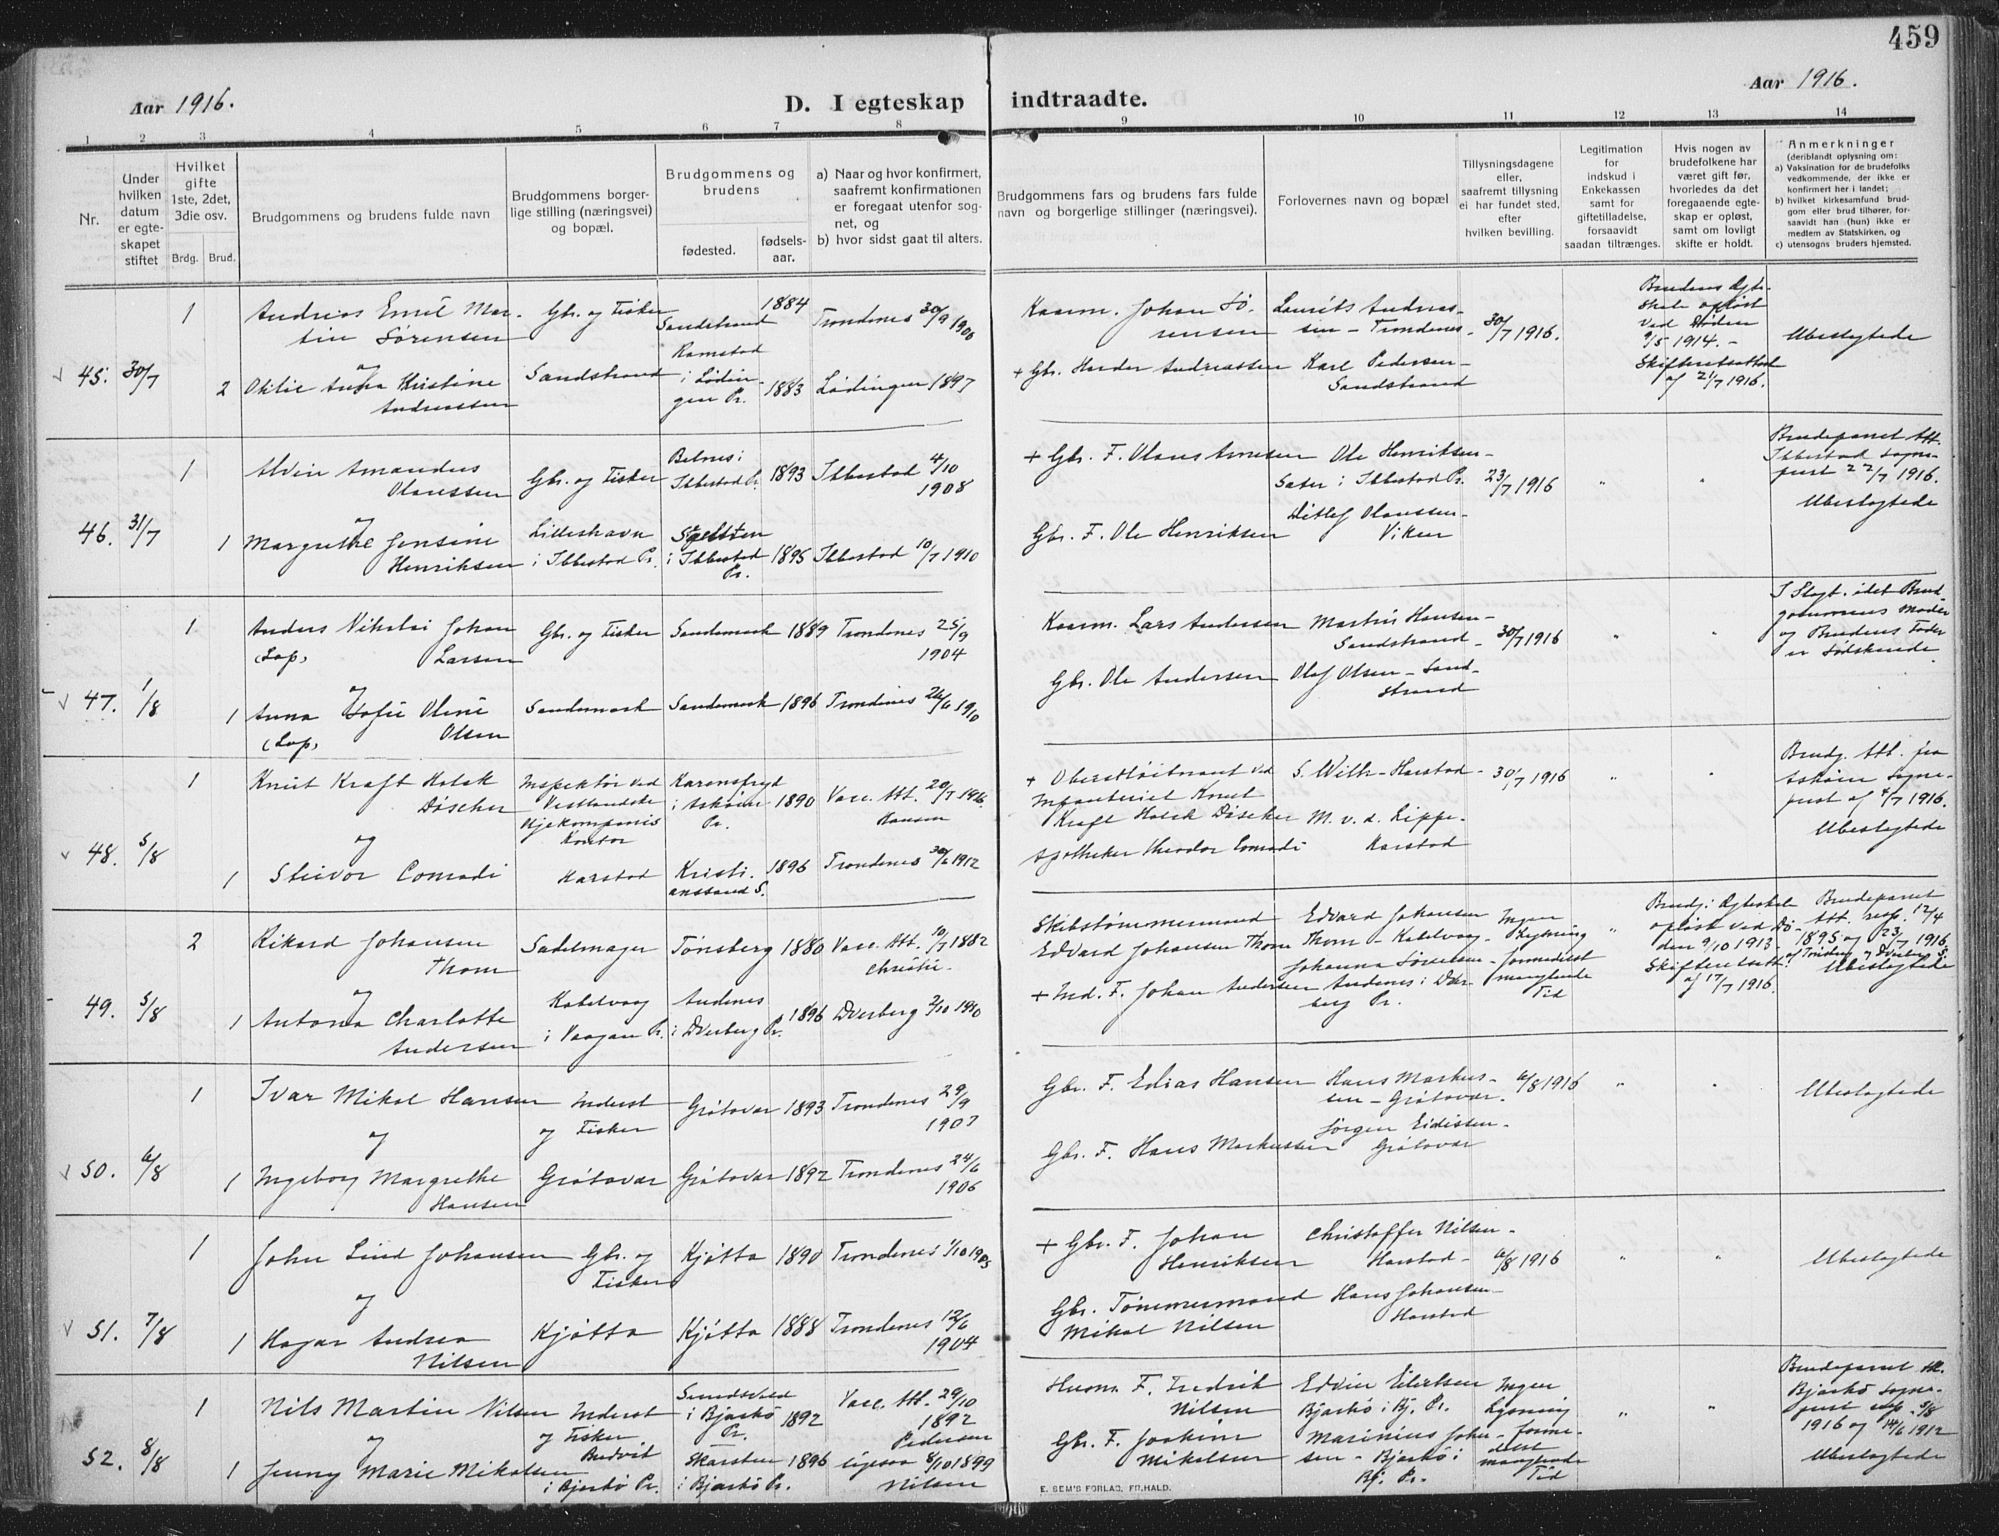 459
Aar 1916.
D. I egteskap indtraadte.
Aar 1916.
1 2 3 4 5 6 7 8 9 10 11 12 13 14
Nr.
Under hvilken datum er egteskapet stiftet
Hvilket gifte 1ste, 2det, 3die osv.
Brdg. Brud.
Brudgommens og brudens fulde navn
Brudgommens borgerlige stilling (næringsvei) og bopæl.
Brudgommens og brudens
fødested.
fødselsaar.
a) Naar og hvor konfirmert, saafremt konfirmationen er foregaat utenfor sognet, og
b) hvor sidst gaat til alters.
Brudgommens fars og brudens fars fulde navn og borgerlige stillinger (næringsvei).
Forlovernes navn og bopæl
Tillysningsdagene eller, saafremt tillysning ei har fundet sted, efter hvilken bevilling.
Legitimation for indskud i Enkekassen samt for giftetilladelse, forsaavidt saadan tiltrænges.
Hvis nogen av brudefolkene har været gift før, hvorledes da det foregaaende egteskap er opløst, samt om lovligt skifte er holdt.
Anmerkninger
(deriblandt oplysning om:
a) Vaksination for de brudefolks vedkommende, der ikke er konfirmert her i landet;
b) hvilket kirkesamfund brudgom eller brud tilhører, forsaavidt han (hun) ikke er medlem av Statskirken, og
c) utensogns bruders hjemsted.
45. 30/7 1
Andreas Emil Martin Sørensen
Gbr. og Fisker
Sandstrand 1884
Trondenes 30/9 1900
Kaarm. Johan Sørensen
Laurits Andreassen - Trondenes -
30/7 1916.
Brudens Ægteskab opløst ved Døden 9/5 1914. -
Skifteretsattest af 21/7 1916.
Ubeslægtede
og
2 Otilie Anna Kristine Andreassen
Sandstrand
Ramstad i Lødingen Pr. 1883
Lødingen 1897
+ Gbr. Harder Andreassen
Karl Pedersen - Sandstrand
46. 31/7 1
Alvin Amandus Olaussen
Gbr. og Fisker
i Ibbestad Pr. 1893
Ibbestad 4/10 1908
+ Gbr. F. Olaus Arnesen
Ole Henriksen - Sæter i Ibbestad Pr.
23/7 1916 " "
Brudeparret Att. Ibbestad Sogneprest 22/7 1916.
Ubeslægtede
og
1 Margrethe Jensine Henriksen
Lilleshavn i Ibbestad Pr.
i Ibbestad Pr. 1895
Ibbestad 10/7 1910
Gbr. F. Ole Henriksen
Ditlef Olaussen - Viken
47. 1/8 1
Anders Nikolai Johan Larsen
(Lap)
Gbr. og Fisker
Sandemark 1889
Trondenes 25/9 1904
Kaarm. Lars Andersen
Martin Hansen - Sandstrand -
30/7 1916 " "
I Slægt. idet Brudgommens Moder og Brudens Fader er Sødskende.
og
1 Anna Sofie Oline Olsen
(Lap)
Sandemark
Sandemark 1896
Trondenes 26/6 1910
Gbr. Ole Andersen
Olaf Olsen - Sandstrand
48. 5/8 1
Knut Kraft Holck Døscher
Inspektør ved Vestlandske Kjøkompanis Kontor
i Askøen Pr. 1890
Vacc. Att. 20/7 1916. Hansen
+ Oberstløitnant ved Infanteriet Knut Kraft Holck Døscher
S. With - Harstad -
30/7 1916 " "
Brudg. Att. fra Askøen Sogneprest af 4/7 1916.
Ubeslægtede
og
1 Steivor Conradi
Harstad
Kristianssand S. 1896
Trondenes 30/6 1912
Apotheker Theodor Conradi
M. v. d. Lippe - Harstad
49. 5/8 2
Rikard Johansen Thom
Sadelmager
Tønsberg 1880
Vacc. Att. 10/7 1882 Christie -
Skibstømmermand Edvard Johansen Thom
Edvard Johansen Thom - Kabelvaag -
Ingen Lysning formedelst manglende Tid
"
Brudg: Ægteskab opløst ved Døden 9/10 1913 - Skifteretsatt. af 17/7 1916.
Brudeparret Att. resp. 12/4 1895 og 23/7 1916 af Tønsberg og Dverberg S.
Ubeslægtede
og
1 Antona Charlotte Andersen
Kabelvaag i Vaagan Pr.
Andenes i Dverberg Pr. 1896
Dverberg 2/10 1910
+ Ind. F. Johan Andersen
Andenes i Dverberg Pr.
50. 6/8 1
Ivar Mikal Hansen
Inderst og Fisker
Grøtavær 1893
Trondenes 29/9 1907
Gbr. F. Edias Hansen
Hans Markussen - Grøtavær.
6/8 1916 " "
Ubeslægtede
og
1 Ingeborg Margrethe Hansen
Grøtavær
Grøtavær 1892
Trondenes 24/6 1906
Gbr. F. Hans Markussen
Jørgen Eidissen - Grøtavær
51. 7/8 1
John Lind Johansen
Gbr. og Fisker
Kjøtta 1890
Trondenes 1/10 1905
+ Gbr. F. Johan Henriksen
Christoffer Nilsen - Harstad -
6/8 1916 " "
Ubeslægtede
og
1 Hagar Andrea Nilsen
Kjøtta
Kjøtta 1888
Trondenes 12/6 1904
Gbr. Tømmermand Mikal Nilsen
Hans Johansen - Harstad
52. 8/8 1
Nils Martin Nilsen
Inderst og Fisker
i Bjarkø Pr. 1892
Vacc. Att. 29/10 1892 Pedersen
Husm. F. Fredrik Nilsen
Edvin Eilertsen Bjarkø i Bj. Pr.
Ingen Lysning formedelst manglende Tid
" "
Brudeparret Att. Bjarkø Sogneprest resp. 5/8 1916 og 14/6 1912
Ubeslægtede
og
1 Jenny Marie Mikalsen
i Bjarkø Pr.
Skarsten i Bjarkø Pr. 1896
Ligesaa 8/10 1899 Nilsen
Gbr. F. Joakim Mikalsen
Marinius Johnsen - Bjarkø i Bj. Pr.
E. SEM'S FORLAG, FR.HALD.